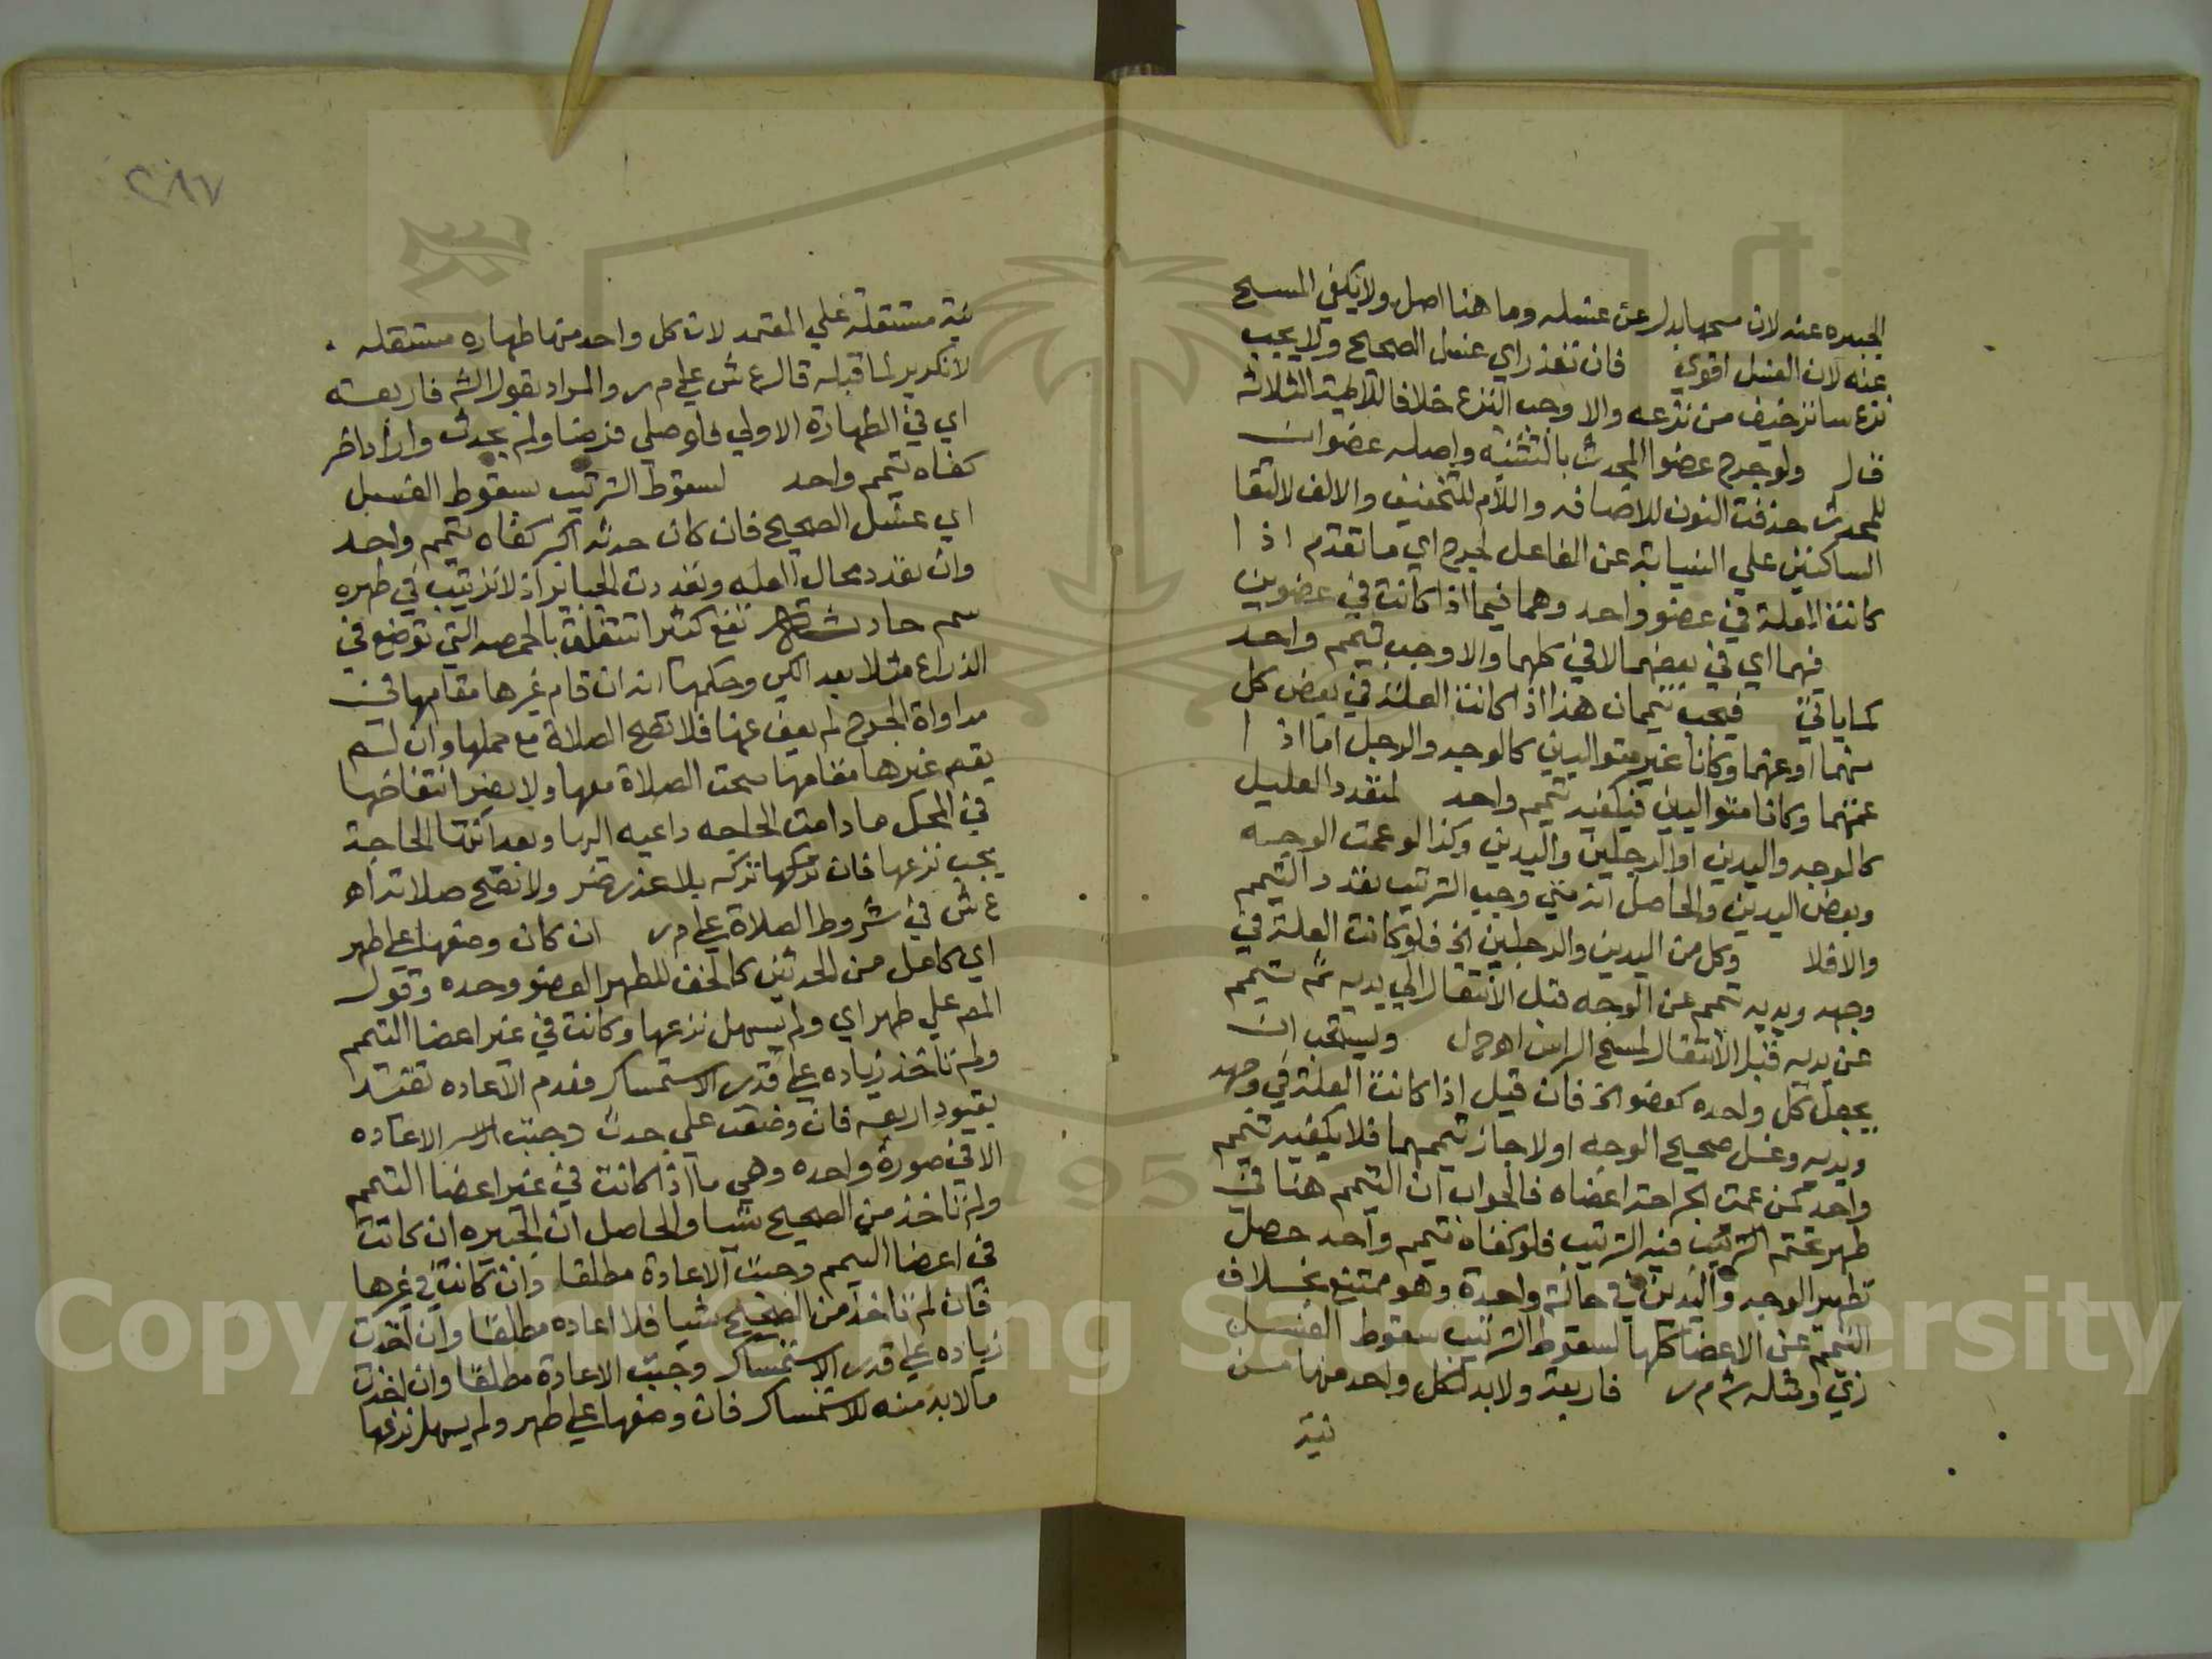 الجبيره عنه لان مسحها بدل عن غسله وما هنا اصل ولا يكفي المسح
عنه لان الغسل اقوي فان تعذر اي غسل الصحيح ولا يجب
نزع ساتر خيف من نزعه والا وجب النزع خلافا للائمة الثلاثة
قال ولو جرح عضوا المحدث بالتثنية واصله عضوان
للمحدث حذفت النون للاضافه واللام للتخفيف والالف لالتقا
الساكنين علي النيابة عن الفاعل لجرح اي ما تقدم اذا
كانت العلة في عضو واحد وهما فيما اذا كانت في عضوين
فهما اي في بعضهما لا في كلهما والا وجب تيمم واحد
كما ياتي فيجب تيممان هذا اذا كانت العلة في بعض كل
منهما او عمتهما وكانا غير متواليين كالوجه والرجل اما اذا
عمتهما وكانا متواليين فيكفيه تيمم واحد لتعدد العليل
كالوجه واليدين او الرجلين واليدين وكذا لو عمت الوجه
وبعض اليدين والحاصل انه متي وجب الترتيب تعدد التيمم
والا فلا وكل من اليدين والرجلين الخ فلو كانت العلة في
وجهه ويديه تيمم عن الوجه قبل الانتقال الي يديه ثم تيمم
عن يديه قبل الانتقال لمسح الراس اهـ ح ل ويستحب ان
يجعل كل واحده كعضو الخ فان قيل اذا كانت العلة في وجهه
ويديه وغسل صحيح الوجه اولا جاز تيممهما فلا يكفيه تيمم
واحد كمن عمت الجراحة اعضاه فالجواب ان التيمم هنا في
طهر تحتم الترتيب فيه الترتيب فلو كفاه تيمم واحد حصل
تطهير الوجه واليدين في حالة واحدة وهو ممتنع بخلاف
التيمم عن الاعضا كلها لسقوط الترتيب بسقوط الغسل
زي ومثله ش م ر فاربعة ولا بد لكل واحد منها من
نية
٢٨٧
نية مستقلة علي المعتمد لان كل واحد منها طهاره مستقله
لا تكرير لما قبله قال ع ش علي م ر والمراد بقول الش فاربعة
اي في الطهارة الاولي فلو صلي فرضا ولم يحدث واراد اخر
كفاه تيمم واحد لسقوط الترتيب بسقوط الغسل
اي غسل الصحيح فان كان حدثه اكبر كفاه تيمم واحد
وان تعدد محال العله وتعددت الجبائر اذ لا ترتيب في طهره
تقع كثيرا تتعلق بالحمصه التي توضع في
الذراع مثلا بعد الكي وحكمها انه ان قام غيرها مقامها في
مداواة الجرح لم يعف عنها فلا تصح الصلاة مع حملها وان لم
يقم غيرها مقامها صحت الصلاة معها ولا يضر انتفاخها
في المحل ما دامت الحاجه داعيه اليها وبعد انتها الحاجة
يجب نزعها فان تركه بلا عذر ضر ولا تصح صلاته اهـ
ع ش في شروط الصلاة علي م ر ان كان وضعها علي طهر
اي كامل من الحدثين كالخف للطهر العضو وحده وقول
المص علي طهر اي ولم يسهل نزعها وكانت في غير اعضا التيمم
ولم تاخذ زياده علي قدر الاستمساك فعدم الاعاده تقيد
بقيود اربعه فان وضعت علي حدث وجبت الاعاده
الا في صورة واحده وهي ما اذا كانت في غير اعضا التيمم
ولم تاخذ من الصحيح شيا والحاصل ان الجبيره ان كانت
في اعضا التيمم وجبت الاعادة مطلقا وان كانت في غيرها
فان لم تاخذ من الصحيح شيا فلا اعاده مطلقا وان اخذت
زياده علي قدر الاستمساك وجبت الاعادة مطلقا وان اخذت
ما لا بد منه للاستمساك فان وضعها علي طهر ولم يسهل نزعها
Copyright © King Saud University
195